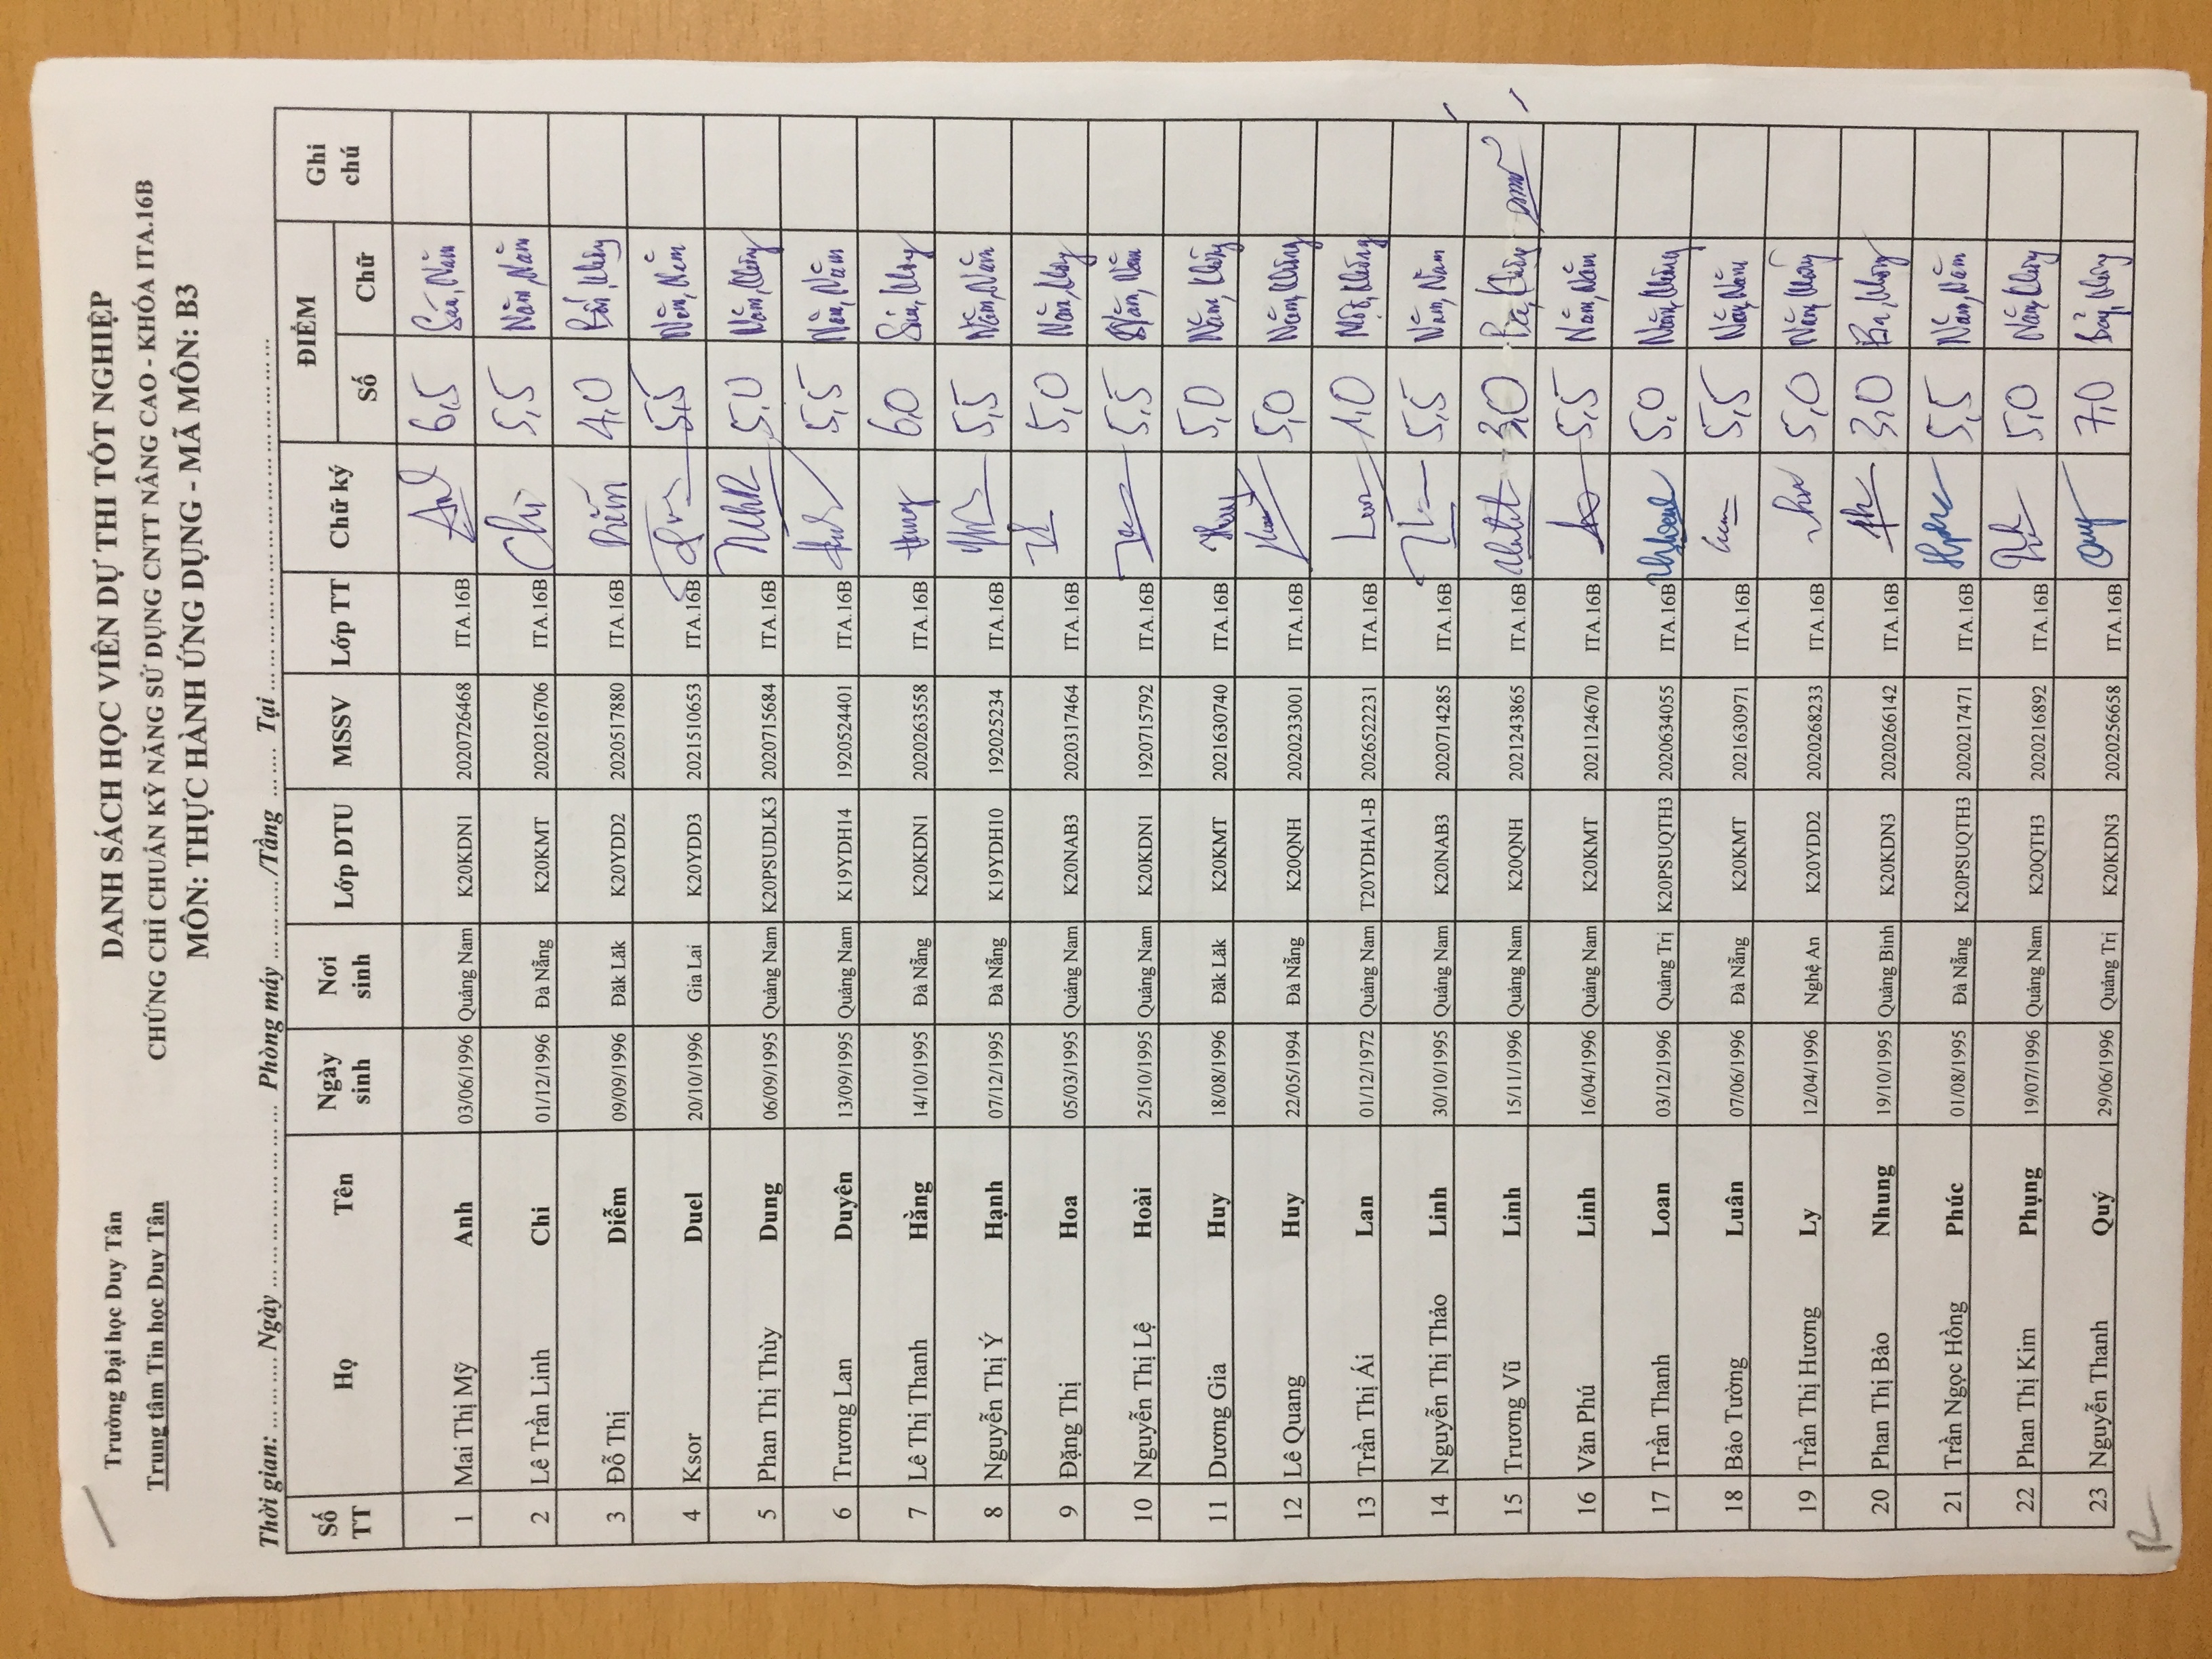 Trường Đại học Duy Tân
Trung tâm Tin học Duy Tân
DANH SÁCH HỌC VIÊN DỰ THI TỐT NGHIỆP
CHỨNG CHỈ CHUẨN KỸ NĂNG SỬ DỤNG CNTT NÂNG CAO - KHÓA ITA.16B
MÔN: THỰC HÀNH ỨNG DỤNG - MÃ MÔN: B3
Thời gian: ........ Ngày ........................ Phòng máy ............/Tầng ........ Tại ................................................
Số TT Họ Tên Ngày sinh Nơi sinh Lớp DTU MSSV Lớp TT Chữ ký ĐIỂM Số Chữ Ghi chú
1 Mai Thị Mỹ Anh 03/06/1996 Quảng Nam K20KDN1 2020726468 ITA.16B Anh 6,5 Sáu, Năm
2 Lê Trần Linh Chi 01/12/1996 Đà Nẵng K20KMT 2020216706 ITA.16B Chi 5,5 Năm, Năm
3 Đỗ Thị Diễm 09/09/1996 Đăk Lăk K20YDD2 2020517880 ITA.16B Diễm 4,0 Bốn, Không
4 Ksor Duel 20/10/1996 Gia Lai K20YDD3 2021510653 ITA.16B 5,5 Năm, Năm
5 Phan Thị Thùy Dung 06/09/1995 Quảng Nam K20PSUDLK3 2020715684 ITA.16B 5,0 Năm, Không
6 Trương Lan Duyên 13/09/1995 Quảng Nam K19YDH14 1920524401 ITA.16B 5,5 Năm, Năm
7 Lê Thị Thanh Hằng 14/10/1995 Đà Nẵng K20KDN1 2020263558 ITA.16B 6,0 Sáu, Không
8 Nguyễn Thị Ý Hạnh 07/12/1995 Đà Nẵng K19YDH10 192025234 ITA.16B 5,5 Năm, Năm
9 Đặng Thị Hoa 05/03/1995 Quảng Nam K20NAB3 2020317464 ITA.16B 5,0 Năm, Không
10 Nguyễn Thị Lệ Hoài 25/10/1995 Quảng Nam K20KDN1 1920715792 ITA.16B 5,5 Năm, Năm
11 Dương Gia Huy 18/08/1996 Đăk Lăk K20KMT 2021630740 ITA.16B 5,0 Năm, Không
12 Lê Quang Huy 22/05/1994 Đà Nẵng K20QNH 2020233001 ITA.16B 5,0 Năm, Không
13 Trần Thị Ái Lan 01/12/1972 Quảng Nam T20YDHA1-B 202652­2231 ITA.16B 1,0 Một, Không
14 Nguyễn Thị Thảo Linh 30/10/1995 Quảng Nam K20NAB3 2020714285 ITA.16B 5,5 Năm, Năm
15 Trương Vũ Linh 15/11/1996 Quảng Nam K20QNH 2021243865 ITA.16B 3,0 Ba, Không
16 Văn Phú Linh 16/04/1996 Quảng Nam K20KMT 2021124670 ITA.16B 5,5 Năm, Năm
17 Trần Thanh Loan 03/12/1996 Quảng Trị K20PSUQTH3 2020634055 ITA.16B 5,0 Năm, Không
18 Bảo Tường Luân 07/06/1996 Đà Nẵng K20KMT 2021630971 ITA.16B 5,5 Năm, Năm
19 Trần Thị Hương Ly 12/04/1996 Nghệ An K20YDD2 2020268233 ITA.16B 5,0 Năm, Không
20 Phan Thị Bảo Nhung 19/10/1995 Quảng Bình K20KDN3 2020266142 ITA.16B 3,0 Ba, Không
21 Trần Ngọc Hồng Phúc 01/08/1995 Đà Nẵng K20PSUQTH3 2020217471 ITA.16B 5,5 Năm, Năm
22 Phan Thị Kim Phụng 19/07/1996 Quảng Nam K20QTH3 2020216892 ITA.16B 5,0 Năm, Không
23 Nguyễn Thanh Quý 29/06/1996 Quảng Trị K20KDN3 2020256658 ITA.16B Quý 7,0 Bảy, Không